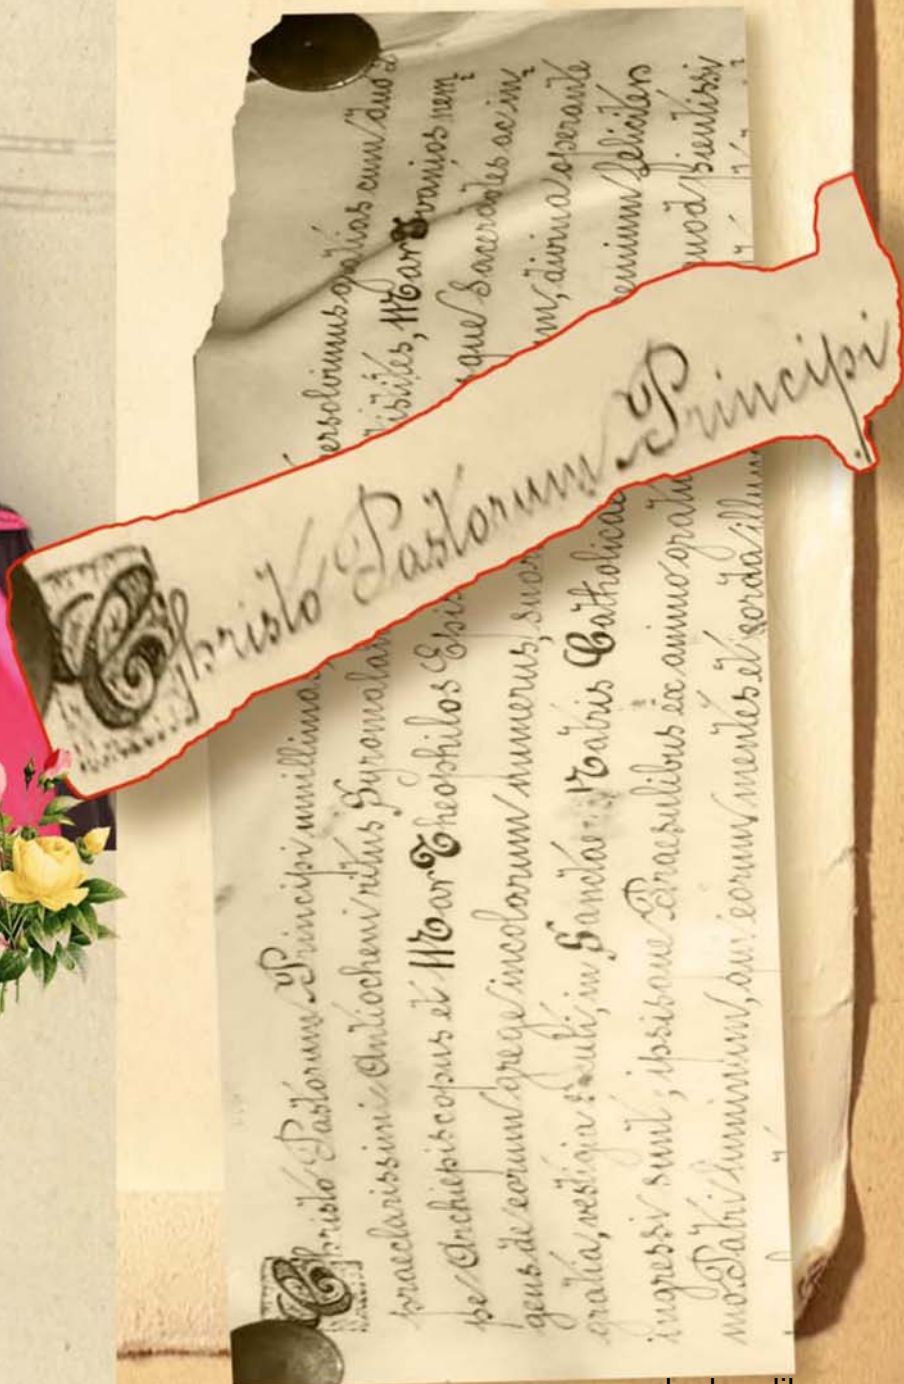 Christo Pastorum Principi
Christo Pastorum Principi umillima ersolvimus gratias cum duo
praeclarissimi Antiocheni ritus Syromalan istites, Mar Ivanios nem
pe Archiepiscopus et Mar Theophilos Epis que Sacerdotes ac in
gens de eorum grege incolarum numerus, suor um, divina operante
gratia, vestigia secuti, in Sanctae Matris Catholicae remium feliciter
ingressi sunt; ipsisque Praesulibus ex animo gratu quod pientissi
mo Patri luminum, qui eorum mentes et corda illum